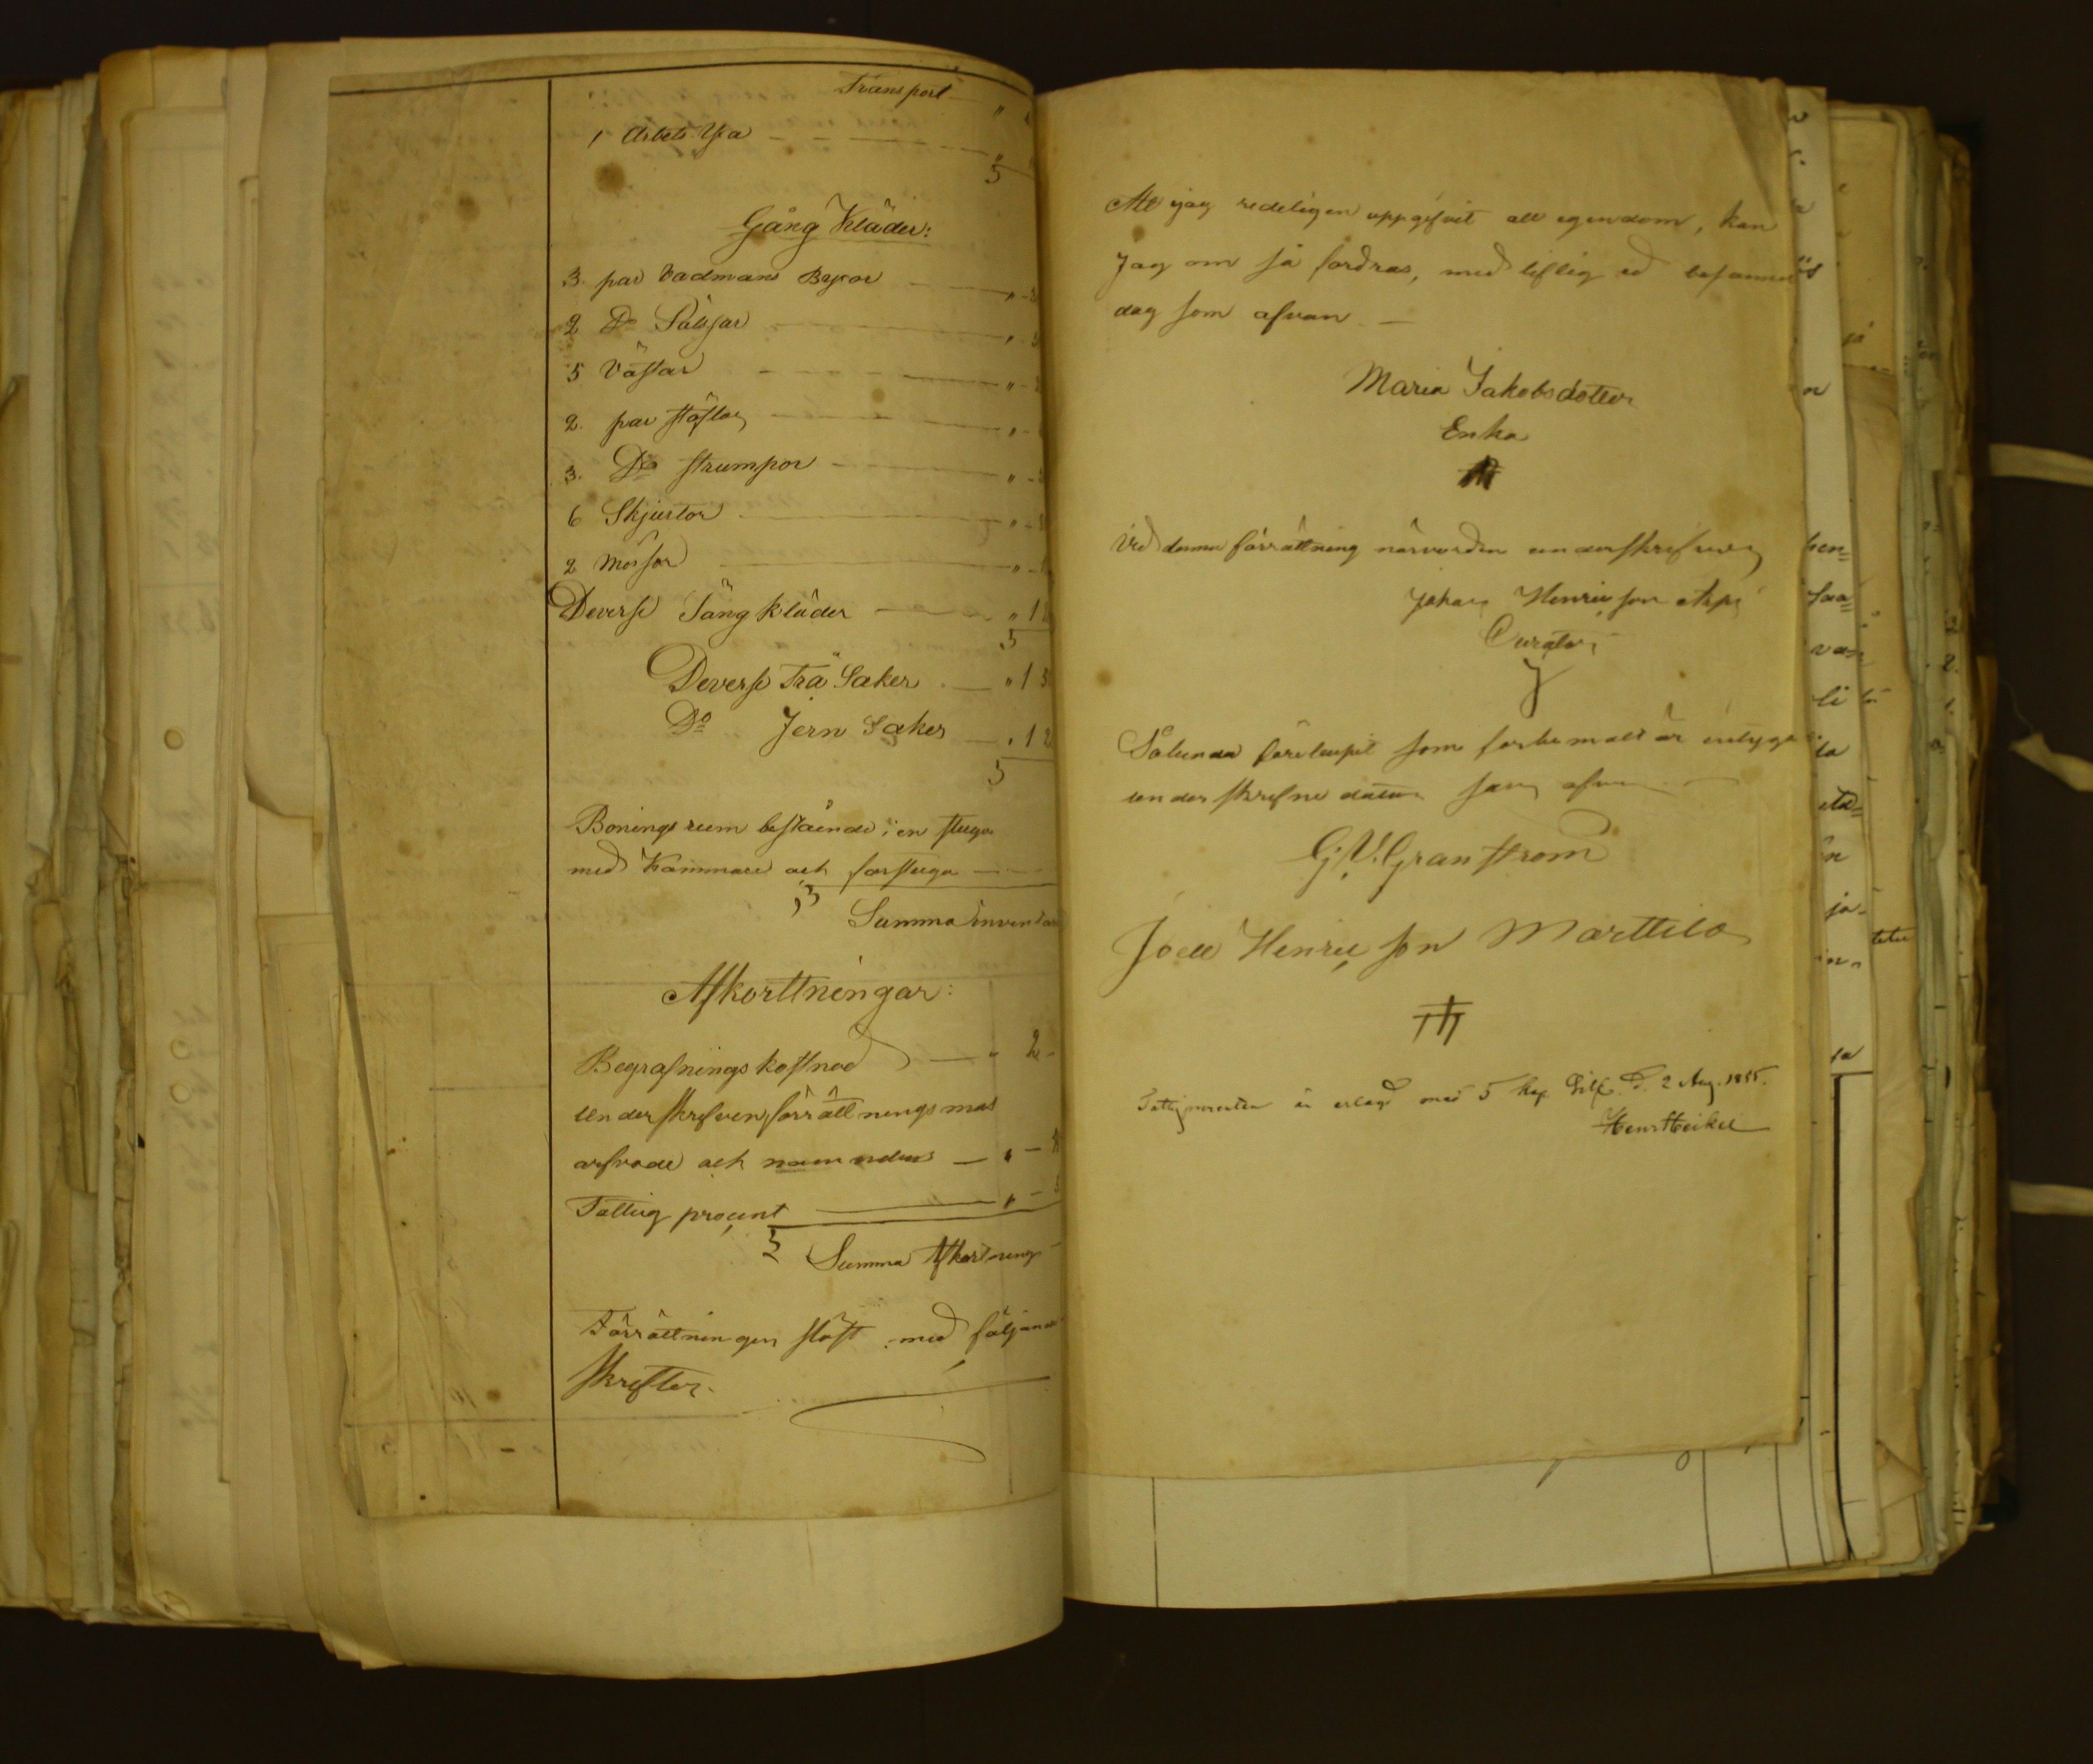 Transport — "
1 Arbets Yxa — — — — "
5
Gång Kläder:
3. par Vadmans Byxor — — " -
2 Do — — "
5 Västar — — — " -
2. par stöflor — — — " -
3. Do strumpor — — " -
6 Skjortor — " -
2 Mössor — " -
Deverse Säng kläder — — " 1
5
Deverse Trä Saker . — " 1 5
Do Jern Saker — " 1 2
5
Bonings rum bestäende i en stuga
med Kammare och forstuga —
Summa Inventar
Afkorttningar:
Begrafnings kostnad — " 2 -
Underskrefven förrättnings mas
arfvode och — " -
Fattig procent — " - 5
Summa Afkortnings
Förrättningen slöst med följande
Skrifter.
Att jag redeligen uppgifvit all egendom, kan
Jag om så fordras, med liflig ed
dag som ofvan. —
Maria Jakobsdotter
Enka
Vid denna förrättning närvarden underskrifven
Johan Henricsson
Curator
Sålunda förelupit som forbemält är intyga
underskrefne datum som ofvan —
G: V: Granström
Joell Henricsson Marttila
Fattigprocenten är erlagd med 5 kop. Silf. T. 2 Aug. 1855.
Henr Heikel